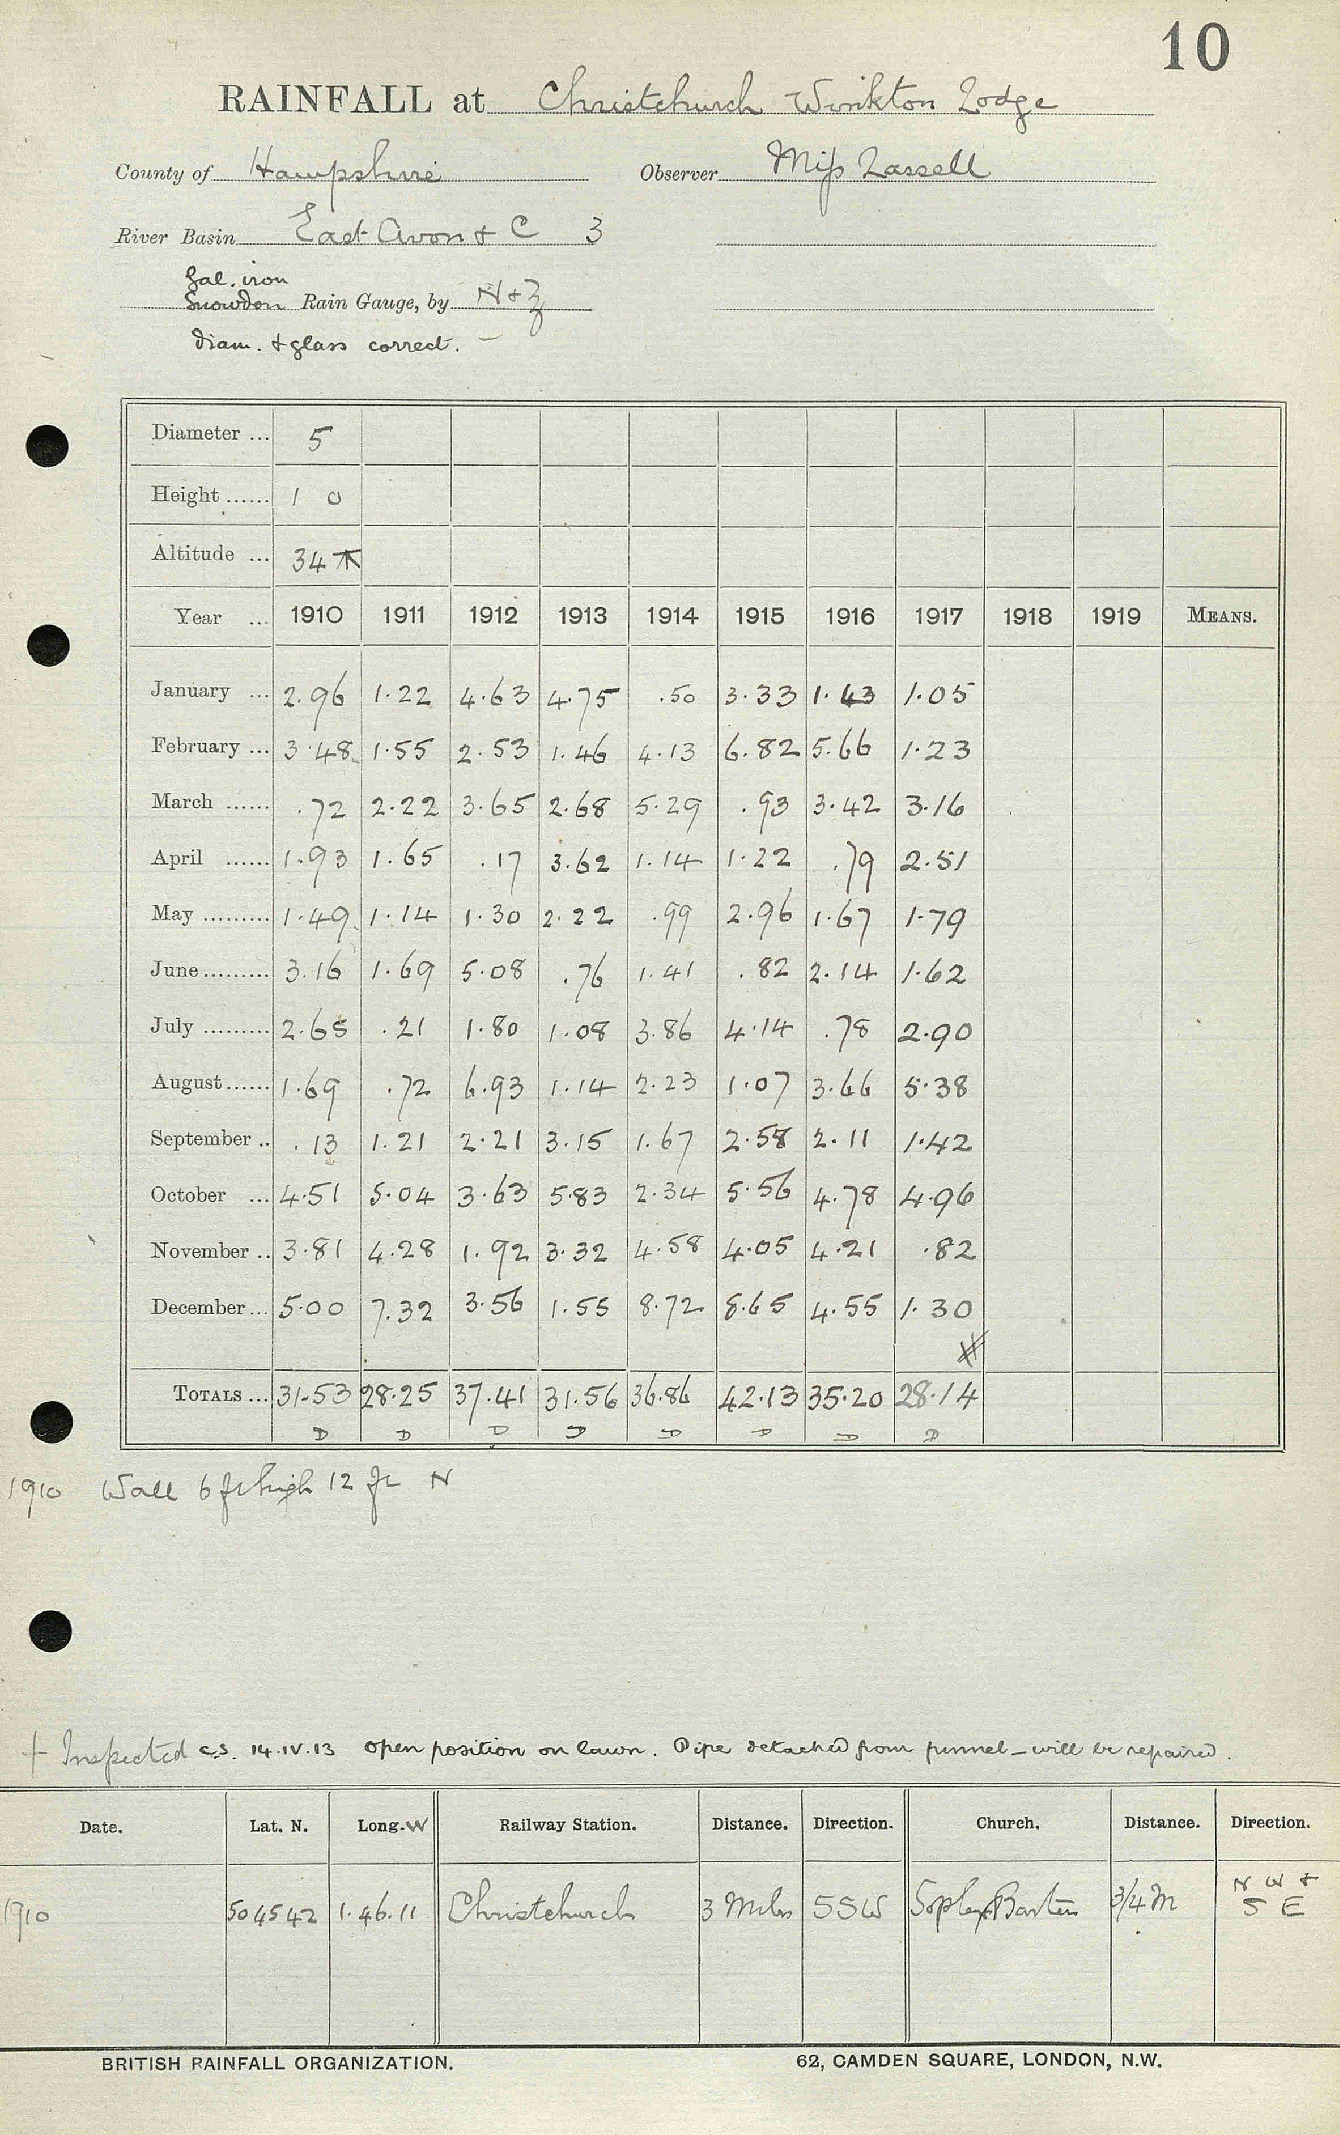 10
RAINFALL at Christchurch Winkton Lodge
County of Hampshire Observer Miss Lassell
River Basin East Avon & C 3
Gal. iron
Snowdon Rain Gauge, by N & Z
diam. & glass correct.
Diameter ... 5
Height ...... 1 0
Altitude ... 34
Year ... 1910 1911 1912 1913 1914 1915 1916 1917 1918 1919 MEANS.
January ... 2.96 1.22 4.63 4.75 .50 3.33 1.43 1.05
February ... 3.48 1.55 2.53 1.46 4.13 6.82 5.66 1.23
March ...... .72 2.22 3.65 2.68 5.29 .93 3.42 3.16
April ...... 1.93 1.65 .17 3.62 1.14 1.22 .79 2.51
May ......... 1.49 1.14 1.30 2.22 .99 2.96 1.67 1.79
June ......... 3.16 1.69 5.08 .76 1.41 .82 2.14 1.62
July ......... 2.65 .21 1.80 1.08 3.86 4.14 .78 2.90
August ...... 1.69 .72 6.93 1.14 2.23 1.07 3.66 5.38
September .. .13 1.21 2.21 3.15 1.67 2.58 2.11 1.42
October ... 4.51 5.04 3.63 5.83 2.34 5.56 4.78 4.96
November .. 3.81 4.28 1.92 3.32 4.58 4.05 4.21 .82
December ... 5.00 7.32 3.56 1.55 8.72 8.65 4.55 1.30
TOTALS ... 31.53 28.25 37.41 31.56 36.86 42.13 35.20 28.14
D D D D D D D D
1910 Wall 6 ft high 12 ft N
+ Inspected C.S. 14.IV.13 Open position on lawn. Pipe detached from funnel – will be repaired.
Date. Lat. N. Long. W Railway Station. Distance. Direction. Church. Distance. Direction.
1910 50 45 42 1.46.11 Christchurch 3 Miles SSW Sopley 3/4 M N W &
S E
BRITISH RAINFALL ORGANIZATION. 62, CAMDEN SQUARE, LONDON, N.W.